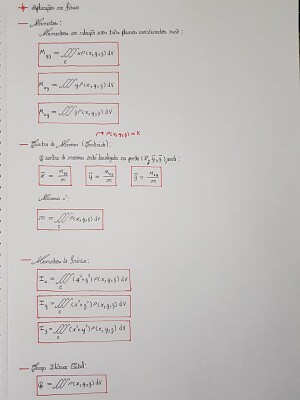 Aplicações na Física
— Momentos:
Momentos em relação aos três planos coordenados são:
M_yz = ∭_E x ρ(x,y,z) dV
M_xz = ∭_E y ρ(x,y,z) dV
M_xy = ∭_E z ρ(x,y,z) dV
→ ρ(x,y,z) = K
— Centro de Massa (Centroide):
O centro de massa está localizado no ponto (x̄, ȳ, z̄), onde:
x̄ = M_yz/m ȳ = M_xz/m z̄ = M_xy/m
Massa:
m = ∭_E ρ(x,y,z) dV
— Momentos de Inércia:
I_x = ∭_E (y²+z²) ρ(x,y,z) dV
I_y = ∭_E (x²+z²) ρ(x,y,z) dV
I_z = ∭_E (x²+y²) ρ(x,y,z) dV
— Carga Elétrica Total:
Q = ∭_E ρ(x,y,z) dV